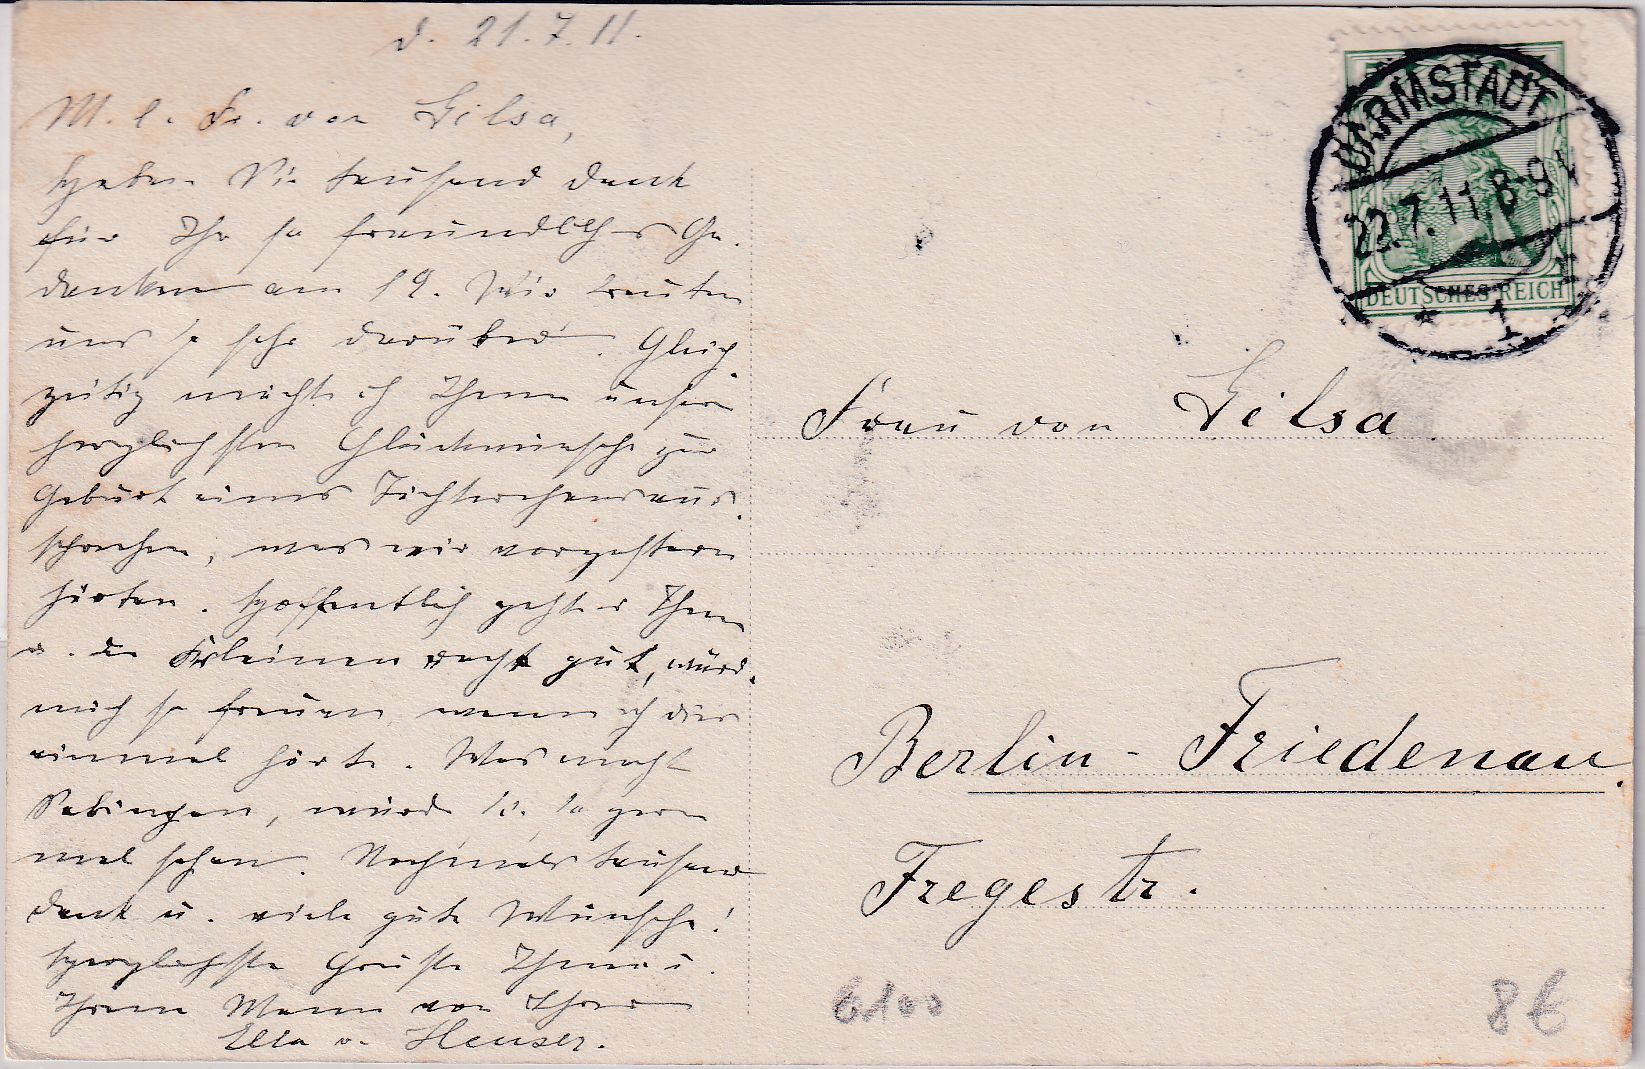 d. 21.7.11.
M. l. Fr. von Gilsa,
Haben Sie tausend Dank
für Ihr so freundliches Ge-
denken am 19. Wir freuten
uns so sehr darüber. Gleich-
zeitig möchte ich Ihnen unsere
herzlichsten Glückwünsche zur
Geburt eines Töchterchens aus-
sprechen, was wir vorgestern
hörten. Hoffentlich geht es Ihnen
u. der Kleinen recht gut, würde
mich so freuen, wenn ich dies
einmal hörte. Was macht
würde sie so gern
mal sehen. Nochmals tausend
Dank u. viele gute Wünsche!
Herzlichste Grüße Ihnen u.
Ihrem Mann von Ihrer
Ella v. Heuser.
DARMSTADT
22.7.11.8-9V
* 1
DEUTSCHES REICH
Frau von Gilsa
Berlin-Friedenau.
Fregestr.
6100
8€